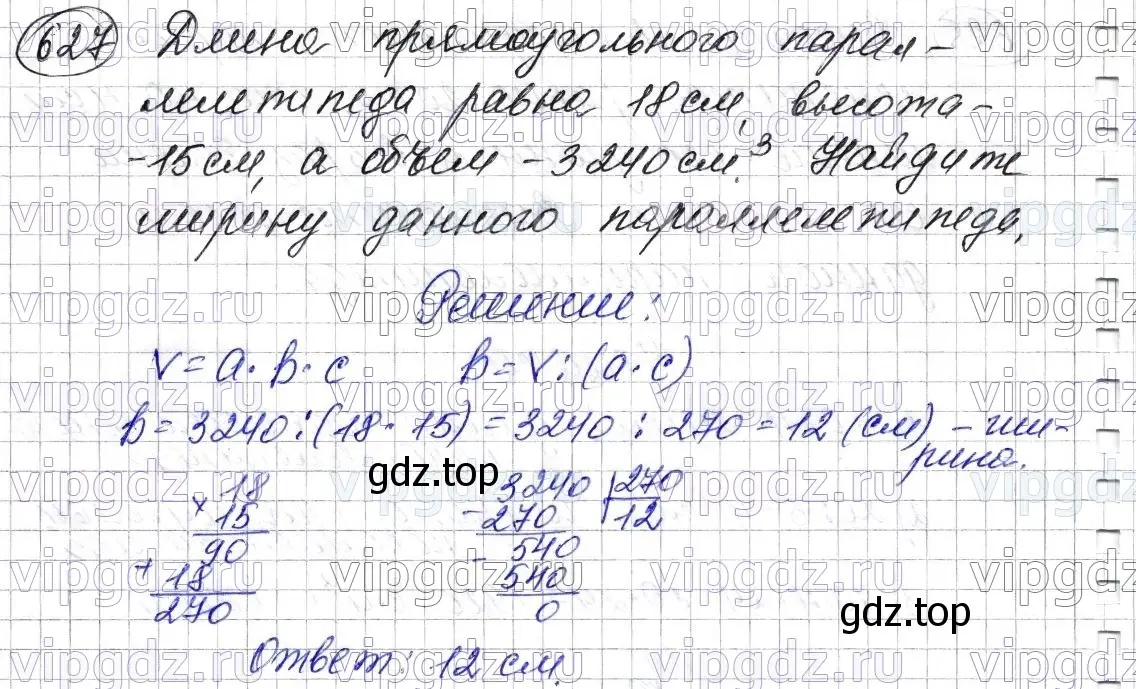 627 Длина прямоугольного парал-
лелепипеда равна 18 см, высота -
- 15 см, а объем - 3240 см³. Найдите
ширину данного параллелепипеда.
Решение:
V = a · b · c    b = V : (a · c)
b = 3240 : (18 · 15) = 3240 : 270 = 12 (см) - ши-
рина.
gdz.top
× 18    - 3240 | 270
15    270    12
90    - 540
+ 18    540
270    0
gdz.top
Ответ: 12 см.
vipgdz.ru